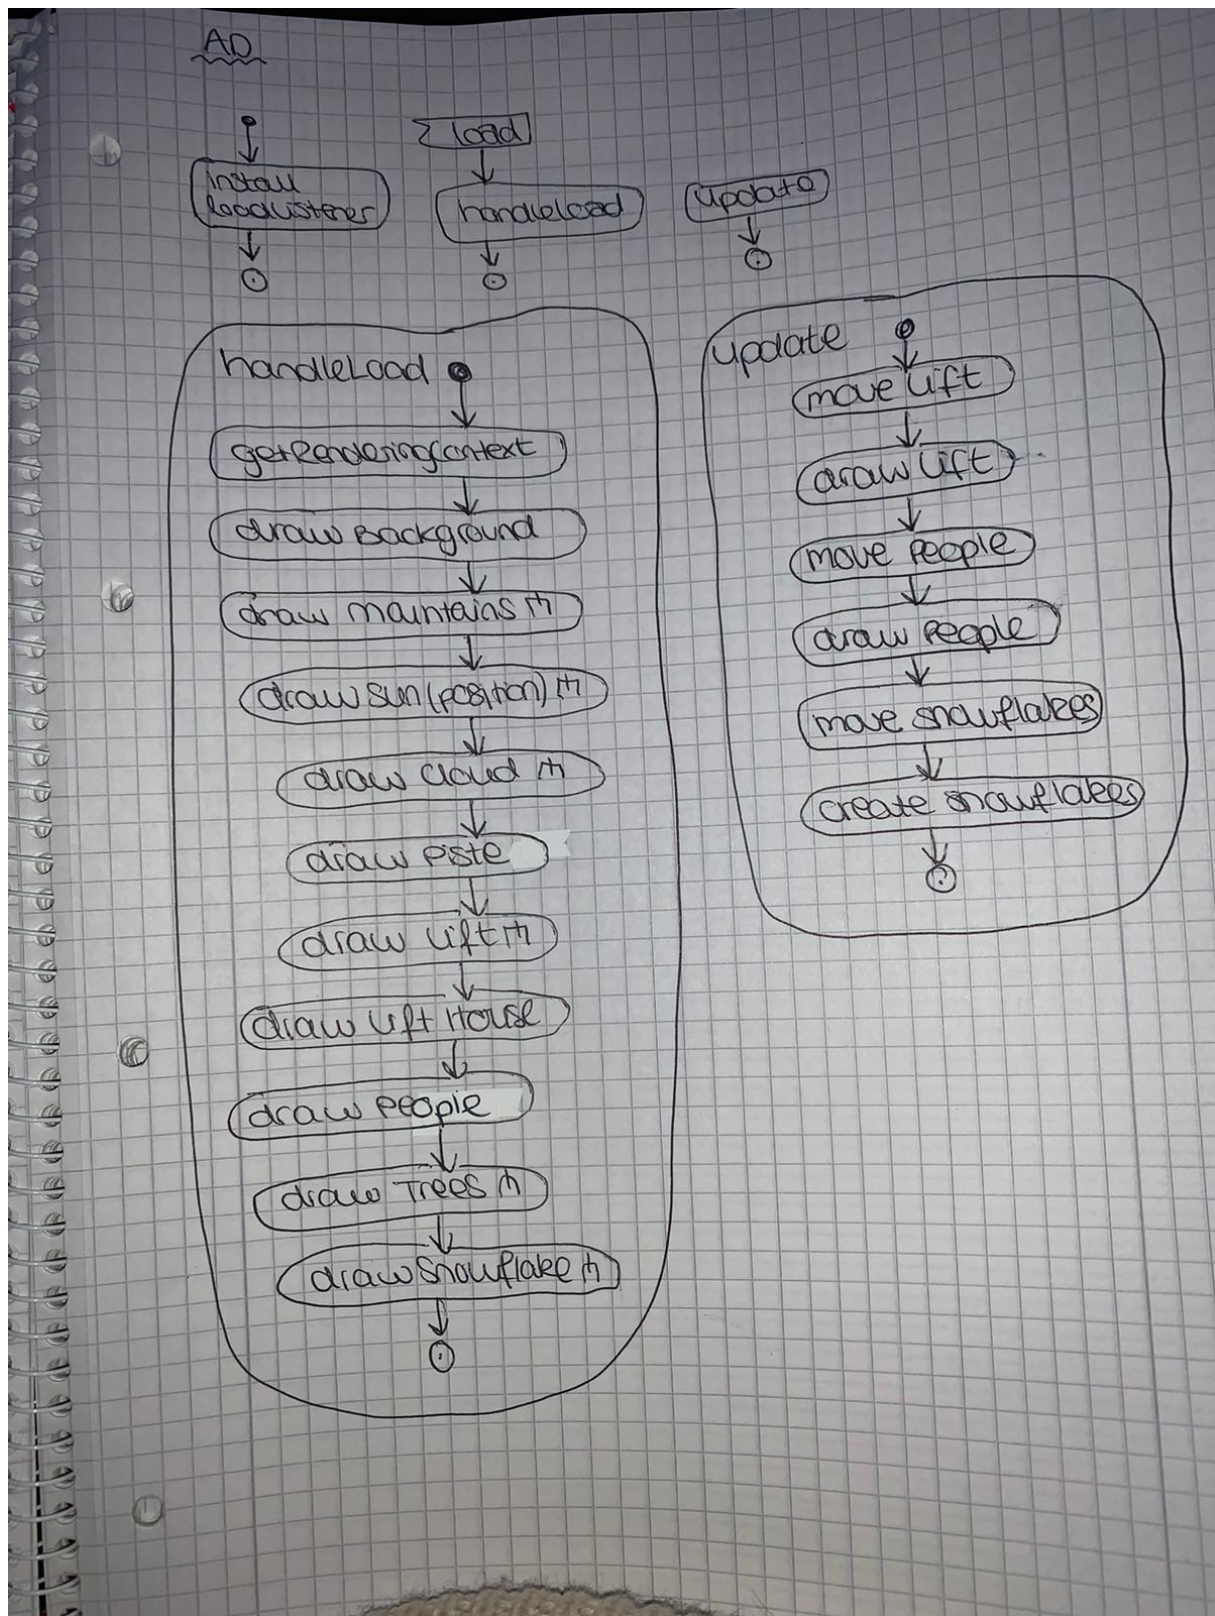 AD
install
loadlistener
load
handleload
update
handleLoad
getRenderingContext
draw Background
draw maintains
draw sun (position)
draw cloud
draw piste
draw lift
draw lift House
draw people
draw Trees
draw snowflake
update
move lift
draw lift
move people
draw people
move snowflakes
create snowflakes